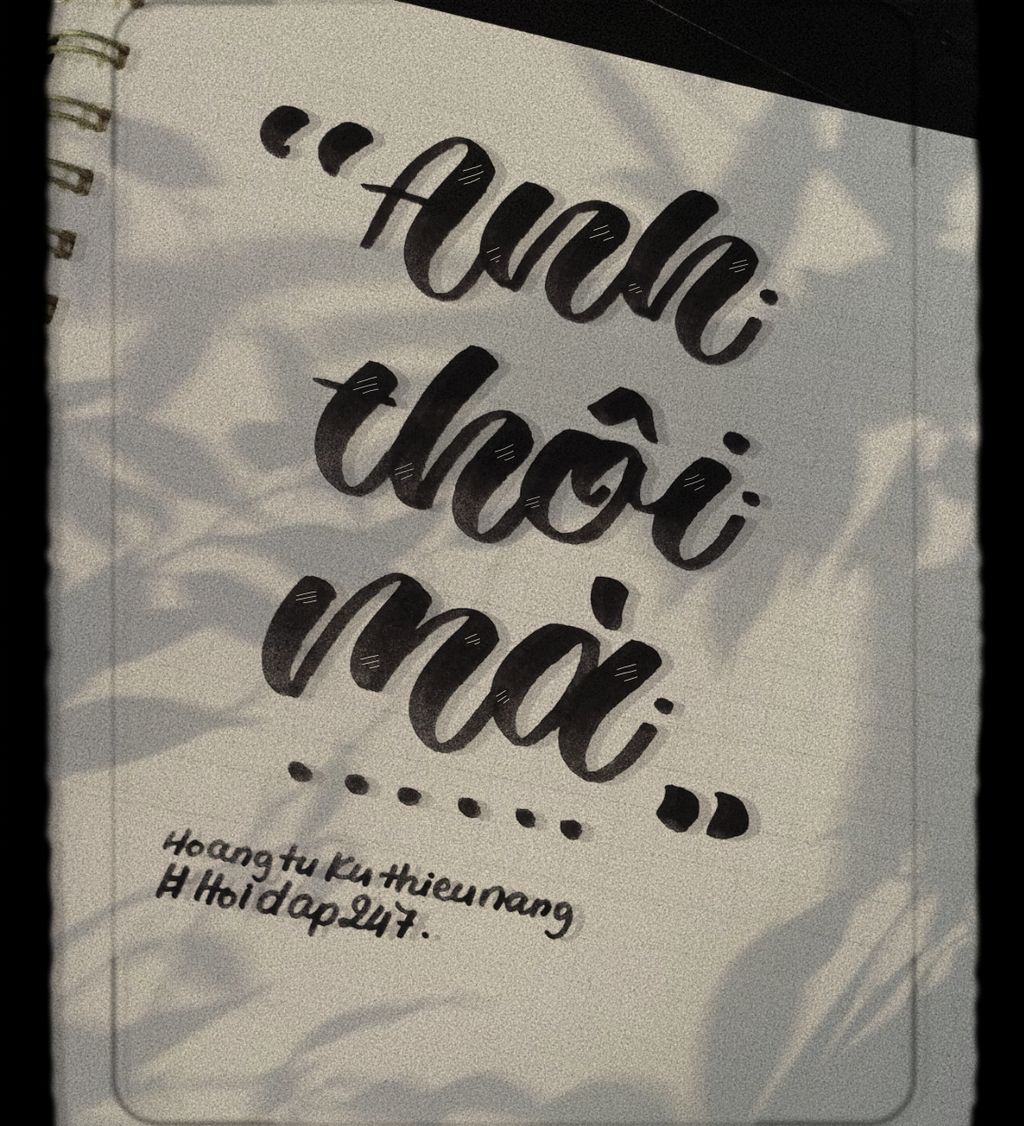 “Anh
thôi
mà
......”
Hoangtu Kuthieunang
# Hoidap247.